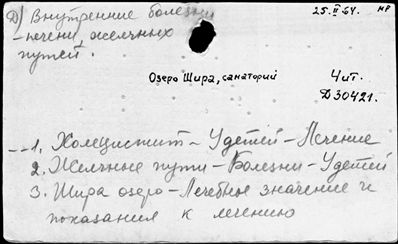 Д) Внутренние болезни
25.II 64.
МР
- печени, желчных
путей.
Озеро Шира, санаторий
Чит.
D30421.
1. Холецистит - У детей - Лечение
2. Желчные пути - Болезни - У детей
3. Шира озеро - Лечебное значение и
показания к лечению